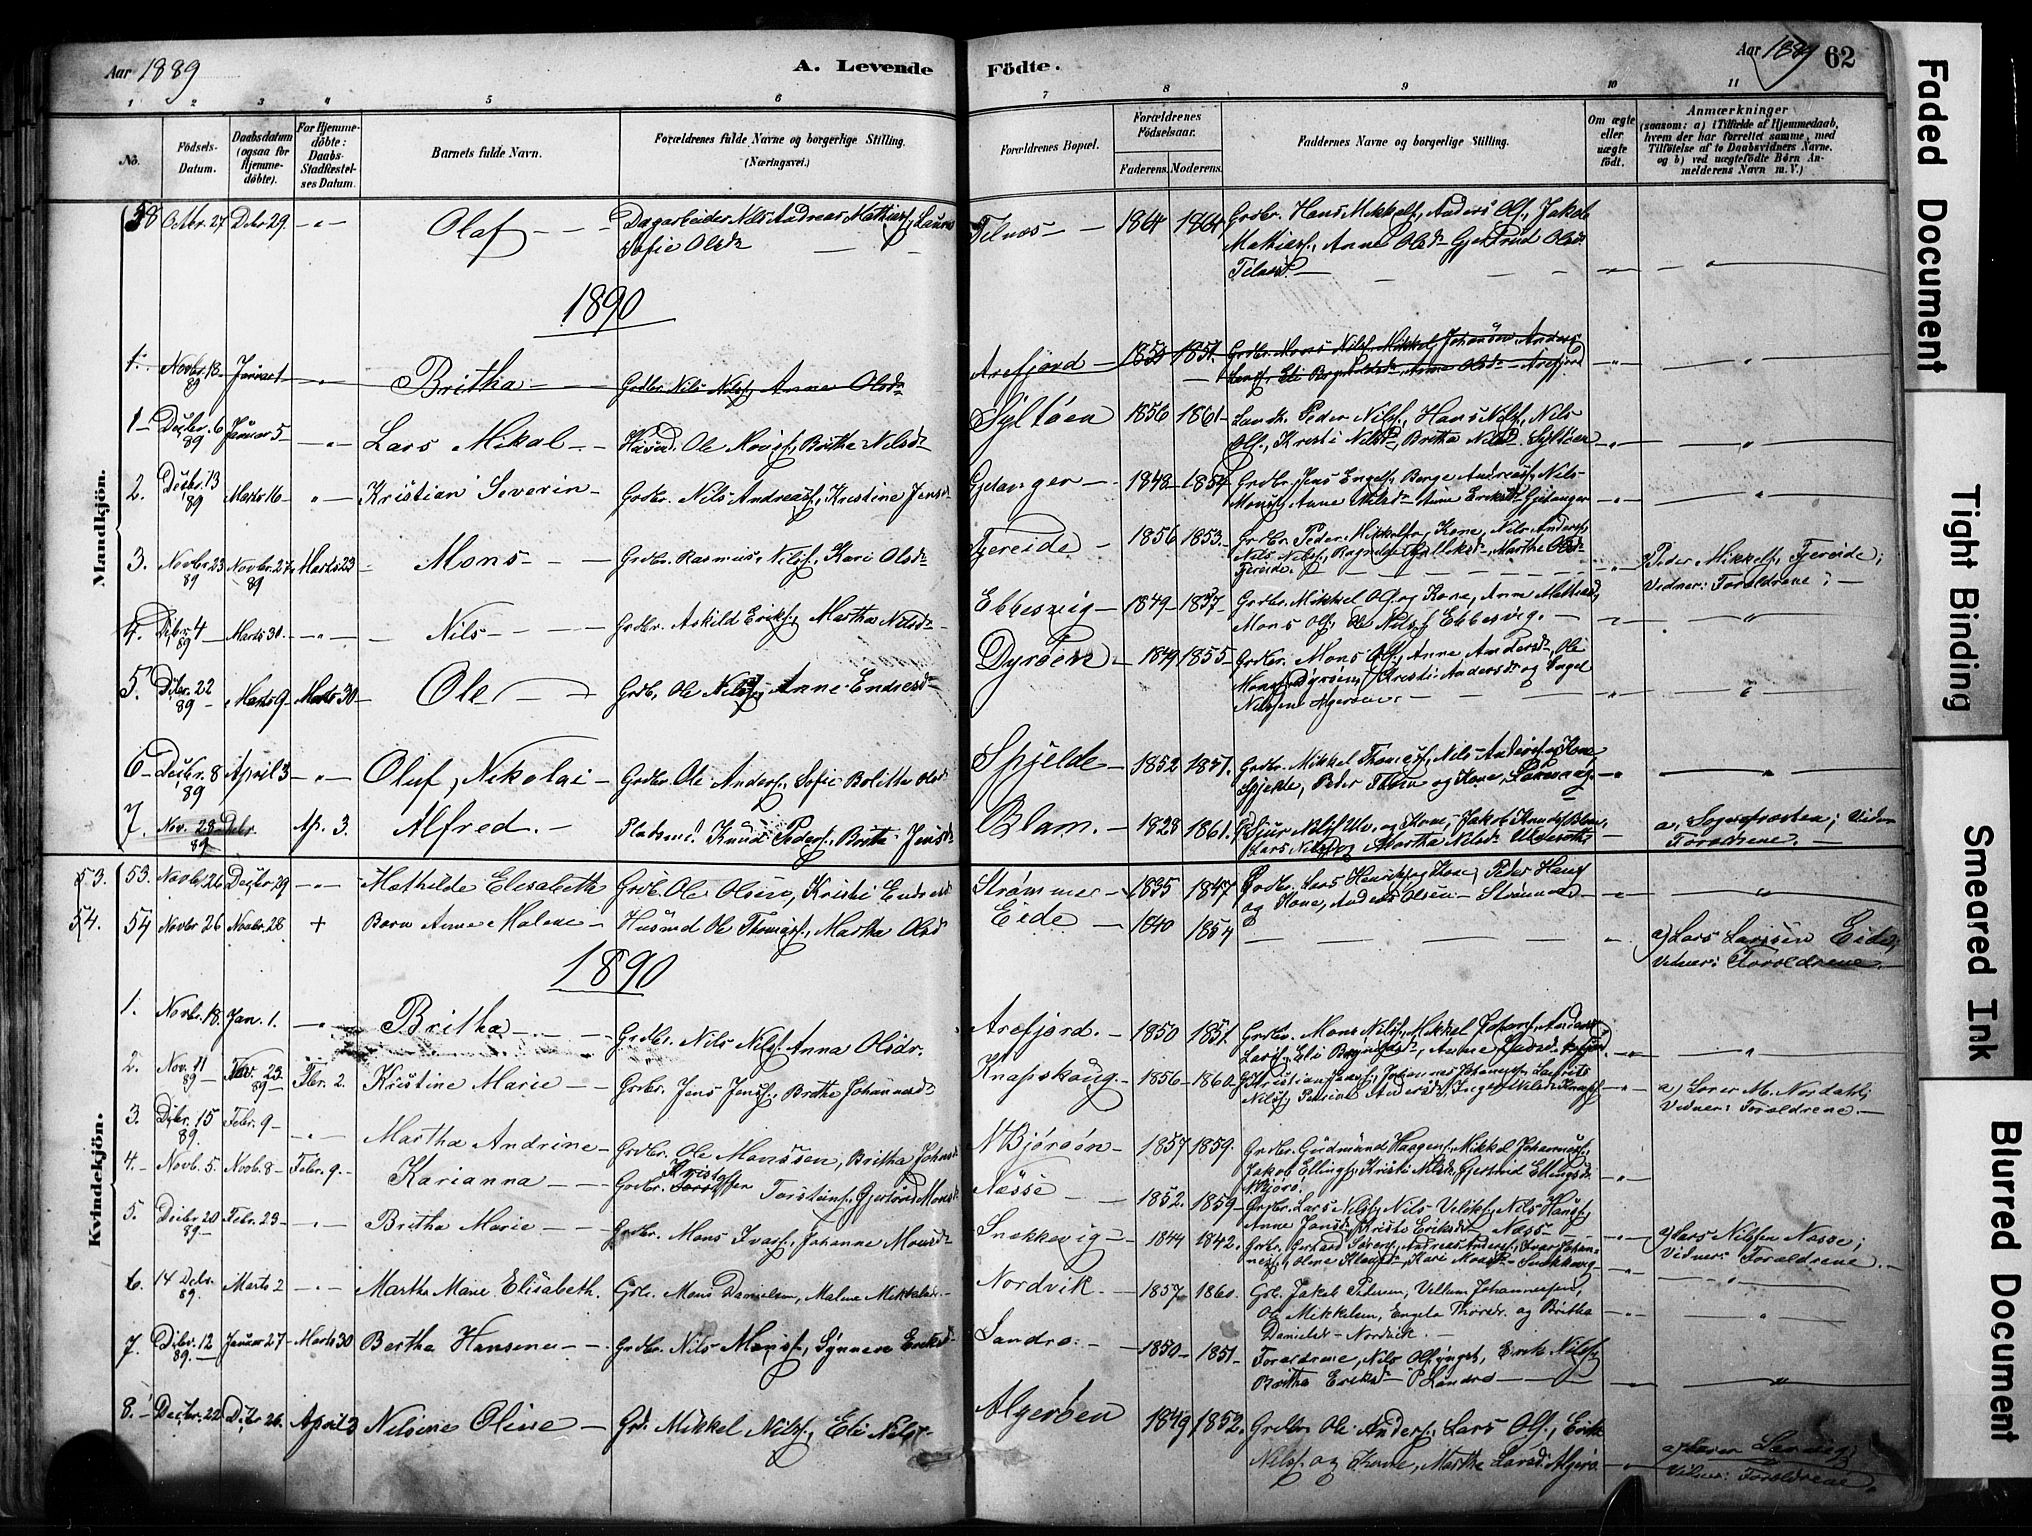 Aar 1889
A. Levende
Födte.
Aar 1889 62
1 2 3 4 5 6 7 8 9 10 11
No.
Födsels-Datum.
Daabsdatum (ogsaa for Hjemme-döbte).
For Hjemme-döbte: Daabs-Stadfæstel-ses Datum.
Barnets fulde Navn.
Forældrenes fulde Navne og borgerlige Stilling. (Næringsvei.)
Forældrenes Bopæl.
Forældrenes Födselsaar.
Faderens. Moderens.
Faddernes Navne og borgerlige Stilling.
Om ægte eller uægte födt.
Anmærkninger
(saasom: a) i Tilfælde af Hjemmedaab, hvem der har forrettet samme, med Tilföielse af to Daabsvidners Navne. og b) ved uægtefödte Börn An-melderens Navn m. V.)
Mandkjön.
58 Octbr. 27 Debr 29. Olaf Dagarbeider Nils Andreas Mathiasf, Laura Sofie Olsdr Telnæs 1864 1864 Grdbr. Hans Mikkelf, Anders Olf, Jakob
Mathiasf, Anne Olsdr Gjertrud Olsdr
1890
1. Novbr. 18 89 Januar 1 Britha Grdbr. Nils Nilsf, Anne Olsdr Arefjord 1850 1851 Grdbr. Mons Nilsf, Mikkel Johansen Anders
1 Decbr. 6 89 Januar 5 Lars Mikal Husmd. Ole Monsf, Britha Nilsdr Syltöen 1856 1861 Peder Nilsf, Hans Nilsf, Nils
Olf, Kristi Nilsdr Britha Nilsdr Syltöen
2. Decbr. 13 89 Marts 16 Kristian Severin Grdbr. Nils Andreasf, Kristine Jensdr Gjetanger 1848 1854 Grdbr. Jens Engelf, Børge Andreasf, Nils
Monsf, Anne Nilsdr Anne Eriksdr Gjetanger
3. Novbr. 23 89 Novbr. 27 89 Marts 23 Mons Grdbr. Rasmus Nilsf, Kari Olsdr Fjereide 1856 1853 Grdbr. Peder Mikkelf, Kone, Nils Andersf,
Nils Nilsf, Martha Olsdr Fjereide.
Peder Mikkelf, Fjereide; Vidner: Forældrene;
4. Debr. 4 89 Marts 30. Nils Grdbr. Askild Eriksf, Martha Nilsdr Ebbesvig 1849 1857 Grdbr. Mikkel Olf og Kone, Anne Mathiasdr,
Mons Olf, Ole Nilsf Ebbesvig.
5. Debr. 22 89 Marts 9 Marts 30 Ole Grdb. Ole Nilsf, Anne Endresdr Dyröen 1849 1855 Grdbr. Mons Olf, Anne Andersdr, Ole
Monsf Dyröen, Kristi Andersdr og Engel
Nilsen Algeröen.
6 Decbr. 8 89 April 3 Oluf Nikolai Grdbr. Ole Andersf, Sofie Bolitta Olsdr Spjelde 1852 1851 Grdbr. Mikkel Thomasf, Nils Andersf og Kone
Spjelde, Peder og Kone,
7. Nov. 28 89 Debr Ap. 3. Alfred. Pladsmd. Knud Pedersf, Britha Jensdr Blam. 1828 1861 Sjur Nilsf Ulv. og Kone, Jakob Knudsf Blom,
Lars Nilsf og Martha Nilsdr
a, Sognepræsten; Vidner Forældrene.
Kvindekjön.
53. 53. Novbr 26 Decbr 29 Mathilde Elisabeth Grdb. Ole Olsen, Kristi Endresdr Strømmen 1835 1847 Grdbr. Lars Henrikf og Kone, Peder Hansf
og Kone, Anders Olsen Strømmen
54. 54 Novbr 26 Novbr. 28 + Barn Anne Malene Husmd Ole Thomasf, Martha Olsdr Eide 1840 1854
a) Lars Larssen Eide, Vidner: Forældrene
1890
1. Novbr. 18. Jan. 1. Britha Grdbr. Nils Nilsf Anna Olsdr. Arefjord. 1850 1851. Grdbr. Mons Nilsf, Mikkel Johansf, Anders
2. Nov. 11 89 Nov. 23 89 Febr. 2. Kristine Marie Grdbr. Jens Jensf, Britha Johannesdr Knapskaug. 1856 1860 Kristian Jensf, Johannes Johannesf, Laurits
a) Lærer M. Nordahl; Vidner: Forældrene.
3. Debr. 15 89. Febr. 9 Martha Andrine Grdbr. Ole Monssen, Britha Johnsdr N Björöön 1857 1859. Grdbr. Gudmund Haagensf, Mikkel Johannesf,
Jakob Ellingsf, Kristi Nilsdr, Gjertrud Ellingsdr
N Bjørö.
4. Novb. 5. Novb. 8 Febr. 9. Karianna Grdbr. Kristoffer Torsteinsf, Gjertrud Monsdr Næsse 1852. 1859 Grdbr. Lars Nilsf, Nils Nils Hansf,
Anne Jansdr, Kristi Eriksdr Næss
a) Lars Nilssen Næsse; Vidner: Forældrene.
5. Debr 20 89. Febr. 23 Britha Marie Grdbr. Mons Ivarsf, Johanne Monsdr Snekkevig 1844 1842. Grdbr. Gerhard Andreas Andersf, Ivar Johan-
nesf, Kari Monsdr Snekkevig
6. 14 Debr. 89. Marts 2 Martha Marie Elisabeth. Grbr. Mons Danielsen, Malene Mikkelsdr Nordvik. 1857 1860. Grb. Jakob Pedersen, Villum Johannessen,
Ole Mikkelsen, Engela Thoresdr. og Britha
Danielsdr Nordvik.
7. Debr. 12 89. Januar 27 Marts 30 Bertha Hansene Grdbr. Nils Monsf, Synneve Eriksdr Landro. 1850 1851 Forældrene, Nils Olf yngst, Erik Nilsf,
Britha Eriksdr Landro
8. Decbr. 22 Debr 26. April 3 Nilsine Oline Grdr. Mikkel Nilsf, Eli Nilsdr Algeröen 1849 1852. Grdbr. Ole Andersf, Lars Olf, Erik
Nilsf og Kone, Martha Larsdr Algerö.
Vidner: Forældrene.
Faded Document
Tight Binding
Smeared Ink
Blurred Document